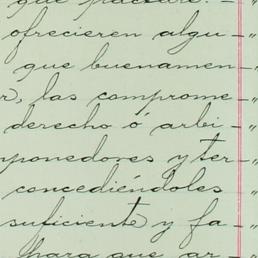 que
ofrecieren algu- "
que buenamen- "
r, las comprome- "
derecho ó arbi- "
mponedores y ter- "
concediéndoles "
suficiente y fa- "
para que ar- "